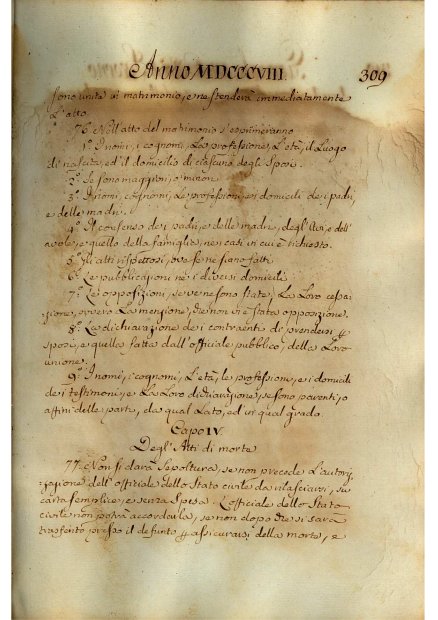 Anno MDCCCVIII 309
sono unita in matrimonio, e ne stenderà immediatamente
l'atto.
76. Nell'atto del matrimonio s'esprimeranno
1.° I nomi, i cognomi, la professione, l'età, il luogo
di nascita, ed il domicilio di ciascuno degli sposi.
2.° Se sono maggiori, o minori
3.° I nomi, cognomi, le professioni, e i domicili dei padri,
e delle madri.
4.° Il consenso dei padri, e delle madri, degl'Avi, e dell'
avole, e quello della famiglia, nei casi in cui è richiesto.
5.° Gli atti rispettosi, ove se ne siano fatti
6.° Le pubblicazioni nei diversi domicili
7.° Le opposizioni, se ve ne sono state; la loro cessa-
zione, ovvero la menzione, che non vi è stata opposizione.
8.° La dichiarazione dei contraenti di prendersi
sposi, e quella fatta dall'officiale pubblico, della loro
unione.
9.° I nomi, i cognomi, l'età, le professioni, e i domicili
dei testimoni, e la loro dichiarazione, se sono parenti, o
affini delle parti, da qual lato, ed in qual grado.
Capo IV.
Degl'Atti di morte
77. Non si darà sepoltura, se non precede l'autoriz-
zazione dell'officiale dello Stato civile da rilasciarsi, su
carta semplice, e senza spesa. L'officiale dello Stato
civile non potrà accordarla, se non dopo che si sarà
trasferito presso il defunto assicurarsi della morte, e